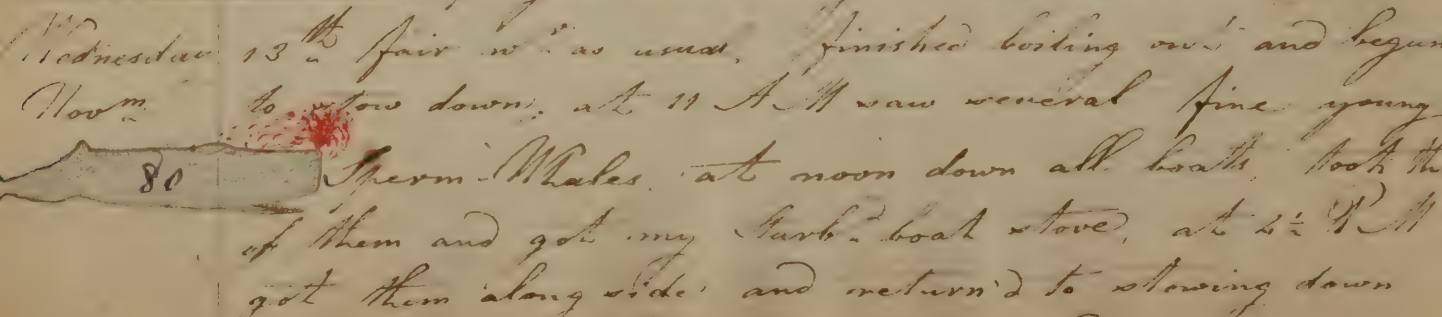 Wednesday 13th fair wr as usual, finished boiling out and begun
Novm to stow down, at 11 A M saw several fine young
80 Sperm Whales, at noon down all boats, took
of them and got my Starbd boat stove, at P M
got them along side and return'd to stowing down